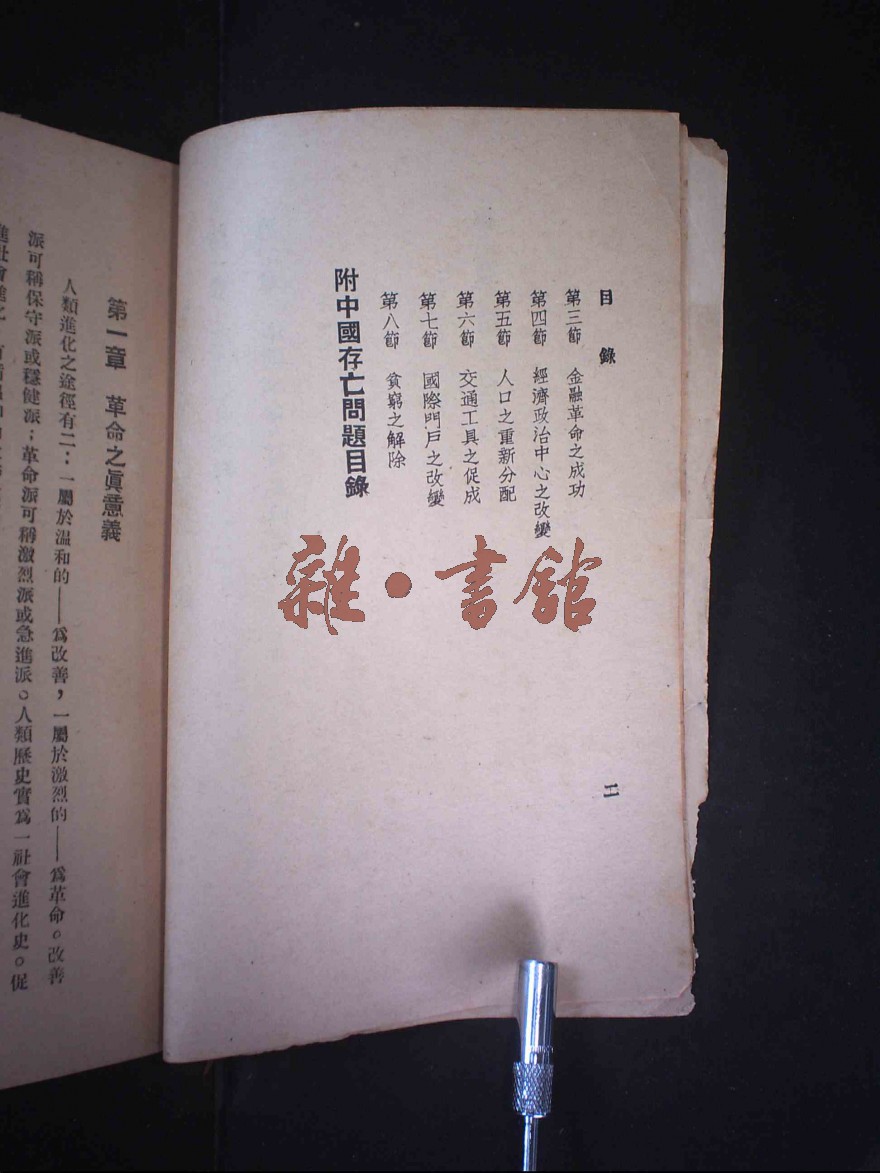 目錄
第三節 金融革命之成功
第四節 經濟政治中心之改變
第五節 人口之重新分配
第六節 交通工具之促成
第七節 國際門戶之改變
第八節 貧窮之解除
附中國存亡問題目錄
二
雜·書館
第一章 革命之眞意義
人類進化之途徑有二：一屬於温和的——爲改善，一屬於激烈的——爲革命。改善
派可稱保守派或穩健派；革命派可稱激烈派或急進派。人類歷史實爲一社會進化史。促
進社會進化